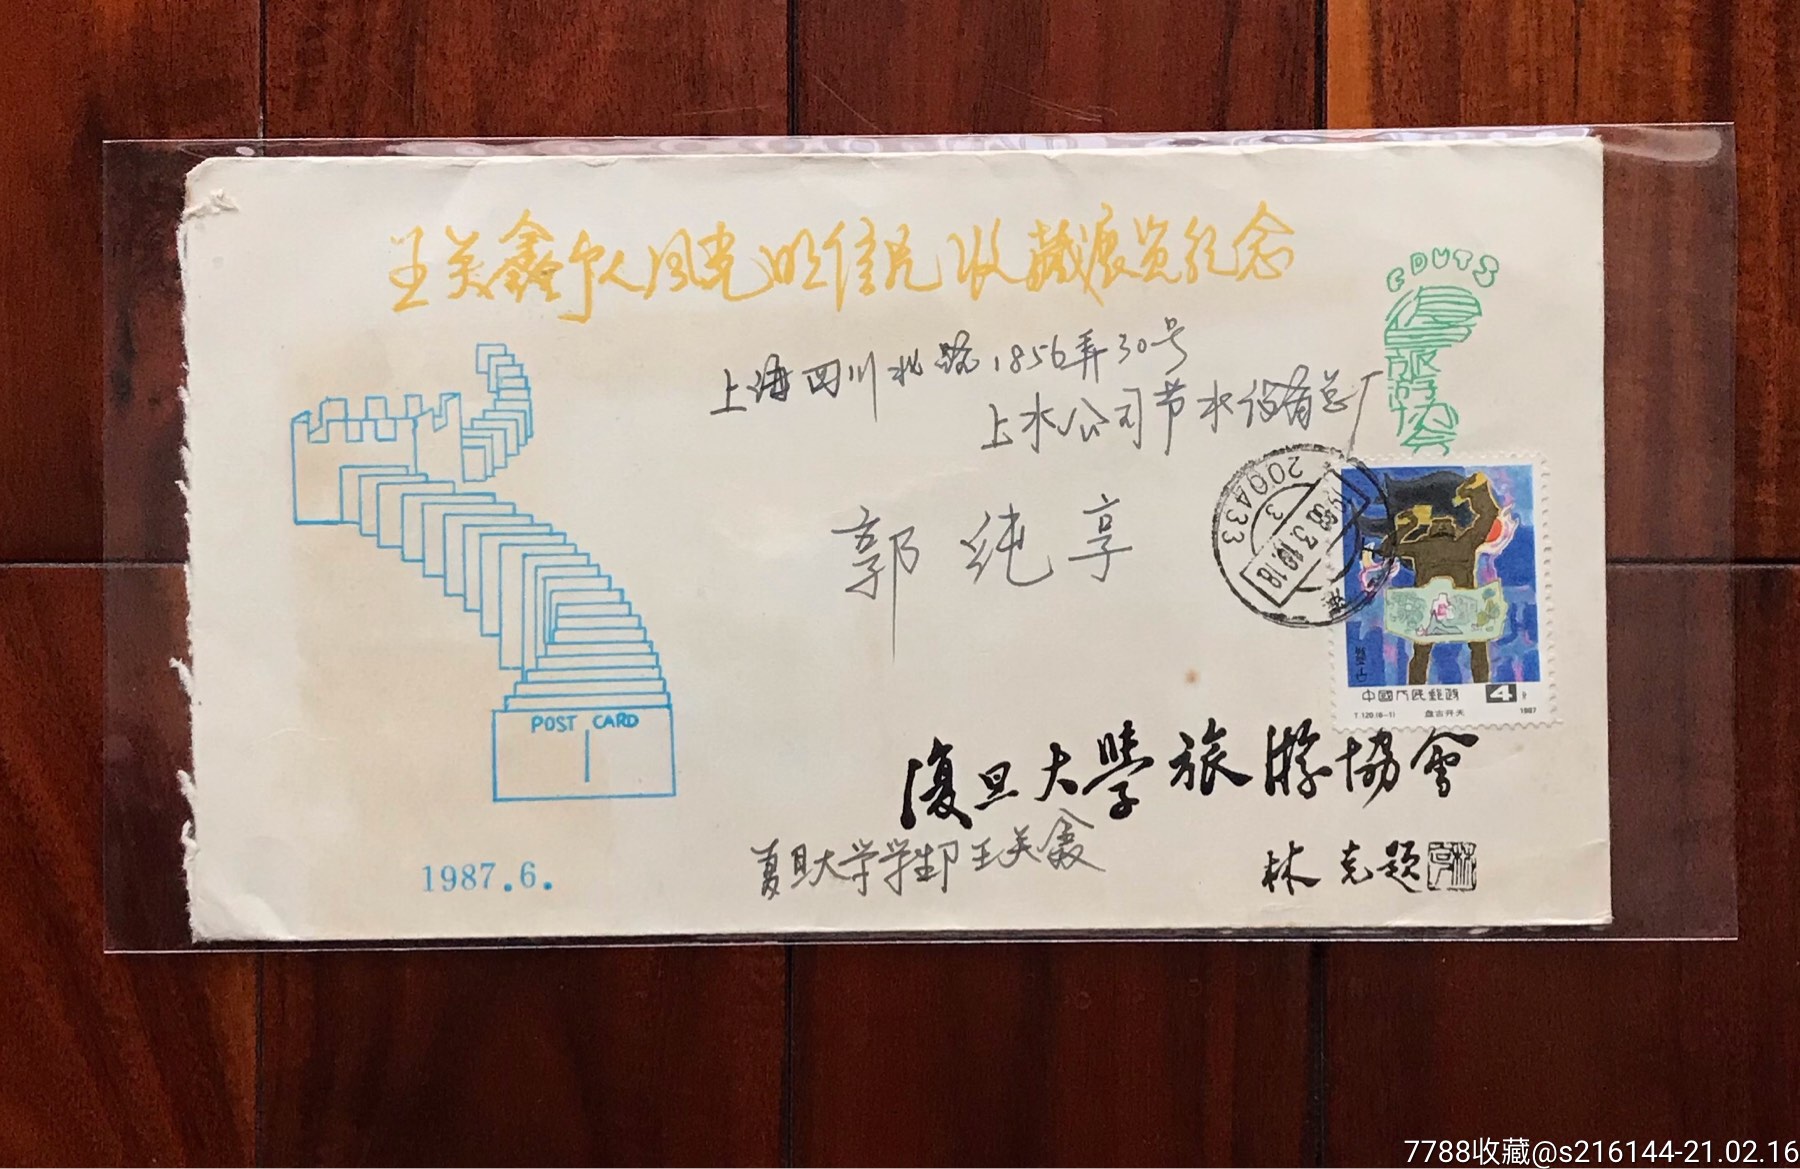 王美鑫个人风光明信片收藏展览纪念
FDUTS
旅游协会
上海四川北路1856弄30号
上水公司节水设备总厂
郭纯享
200433
中国人民邮政 4分
T.120.(6-1) 盘古开天 1987
POST CARD
復旦大學旅游協會
复旦大学学生邮 王美鑫
林克題
1987.6.
7788收藏@s216144-21.02.16